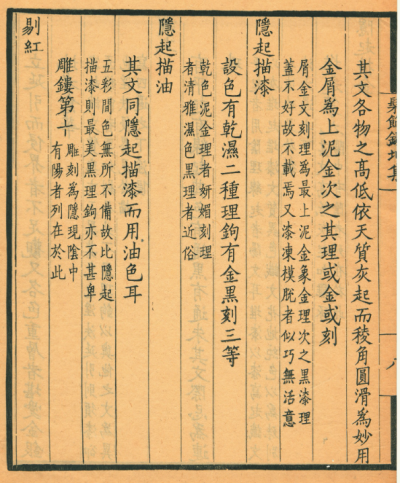 髹飾錄坤集
八
其文各物之高低依天質灰起而稜角圓滑爲妙用
金屑爲上泥金次之其理或金或刻
屑金文刻理爲最上泥金象金理次之黑漆理
蓋不好故不載焉又漆凍模脫者似巧無活意
隱起描漆
設色有乾濕二種理鉤有金黑刻三等
乾色泥金理者妍媚刻理
者清雅濕色黑理者近俗
隱起描油
其文同隱起描漆而用油色耳
五彩間色無所不備故比隱起
描漆則最美黑理鉤亦不甚卑
雕鏤第十
雕刻爲隱現陰中
有陽者列在於此
剔紅